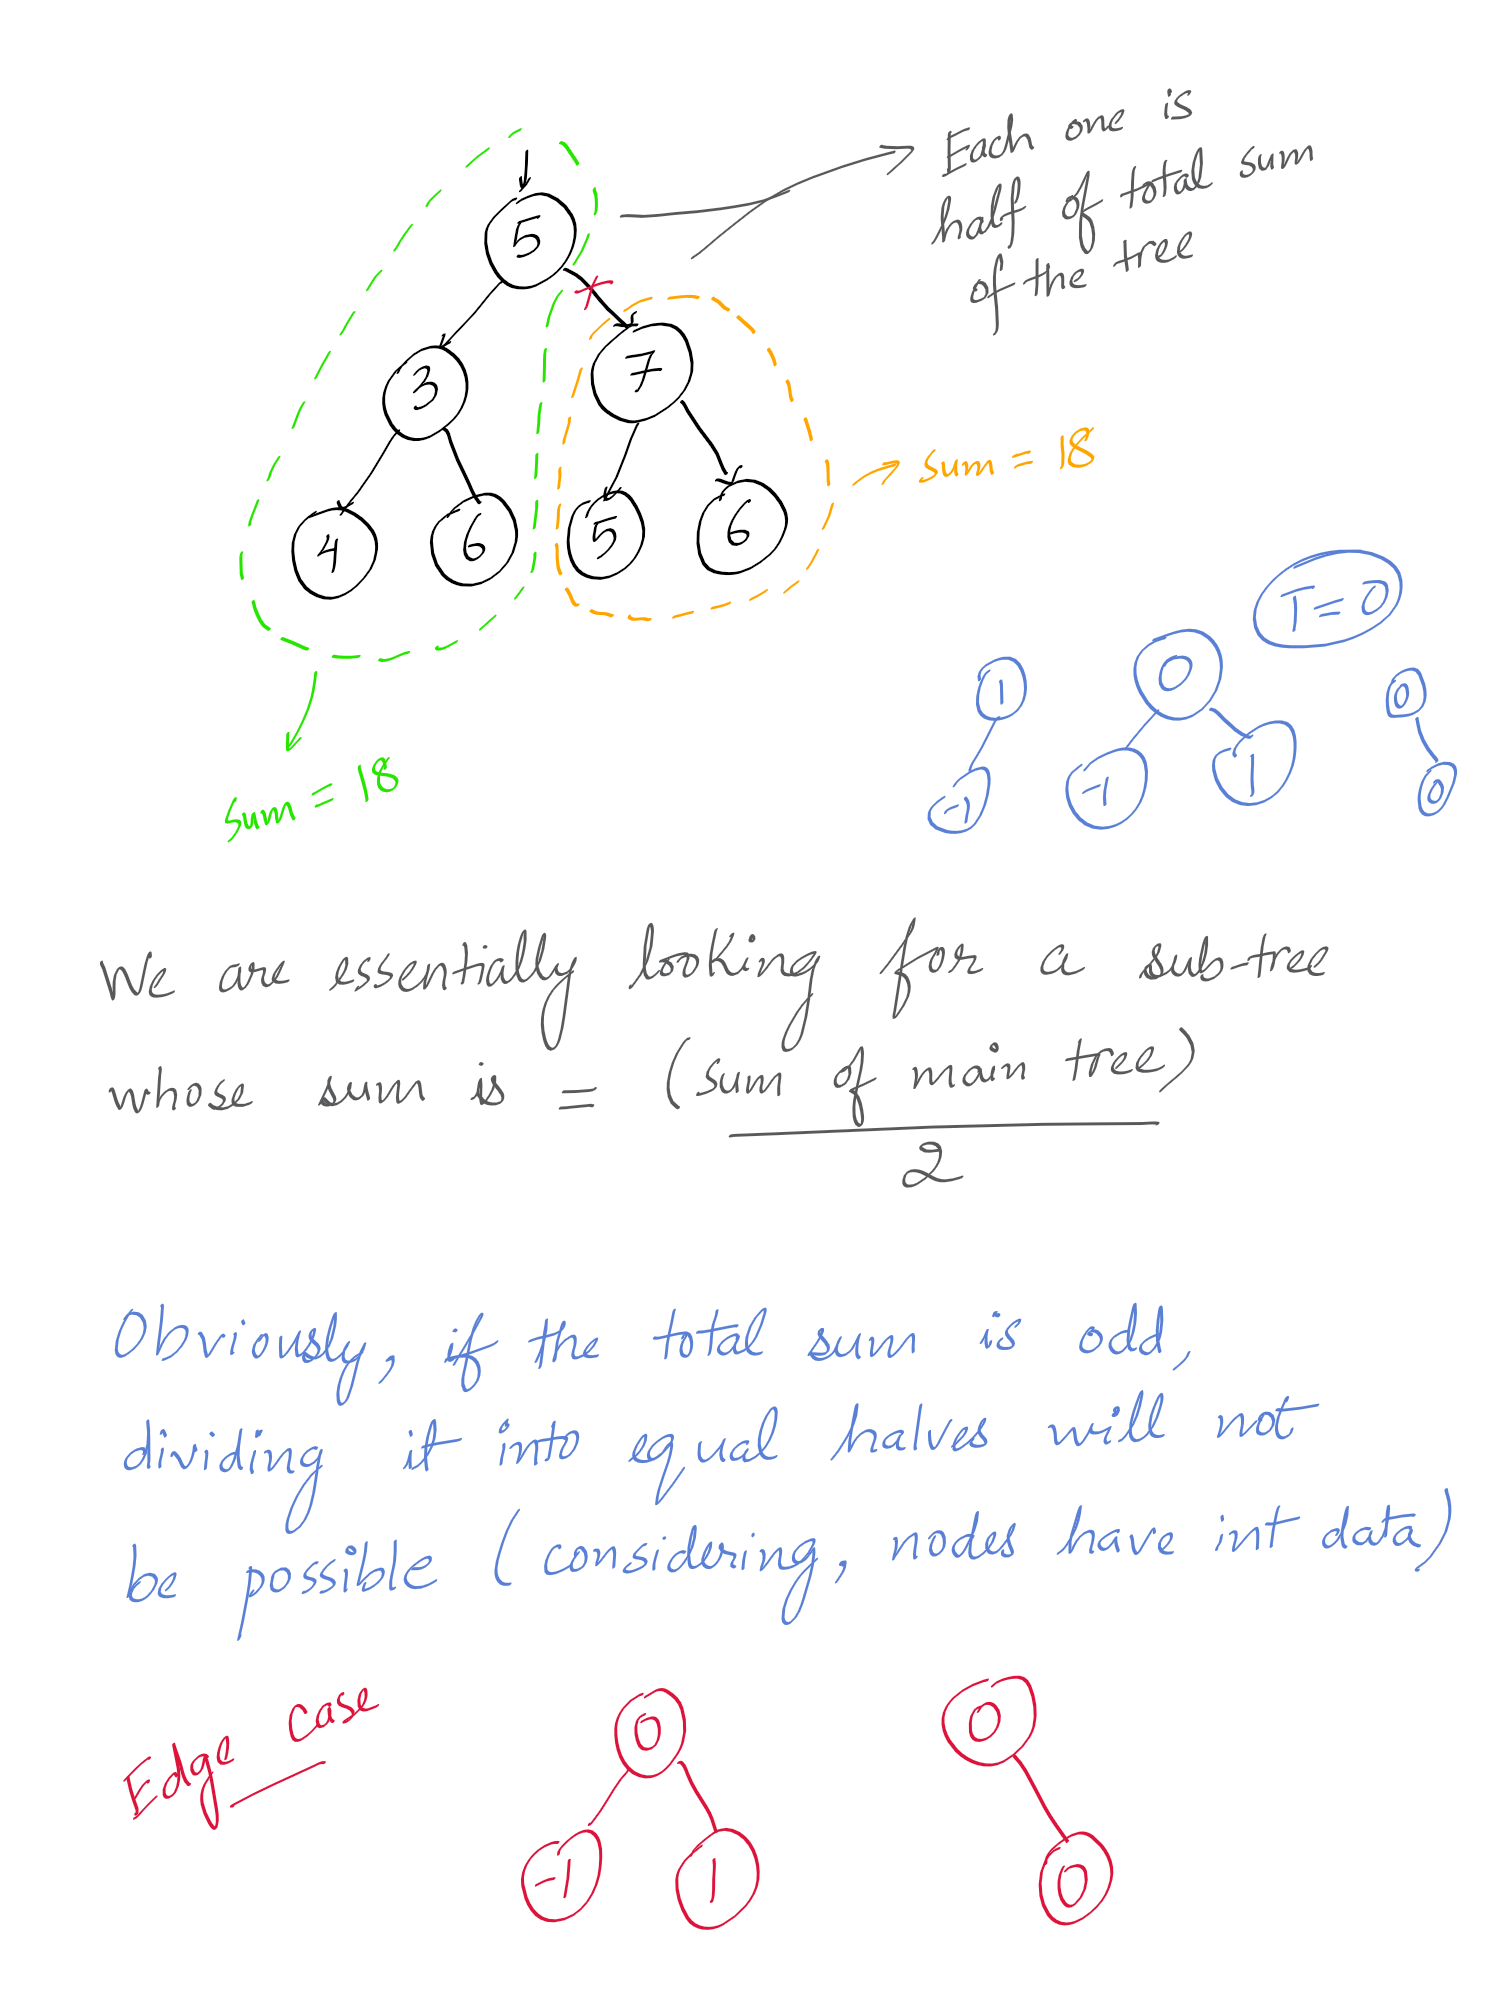 Each one is
half of total sum
of the tree
5
3
7
4
6
5
6
sum = 18
sum = 18
T = 0
1
-1
0
-1
1
0
0
We are essentially looking for a sub-tree
whose sum is = (sum of main tree)
2
Obviously, if the total sum is odd,
dividing it into equal halves will not
be possible (considering, nodes have int data)
Edge case
0
-1
1
0
0